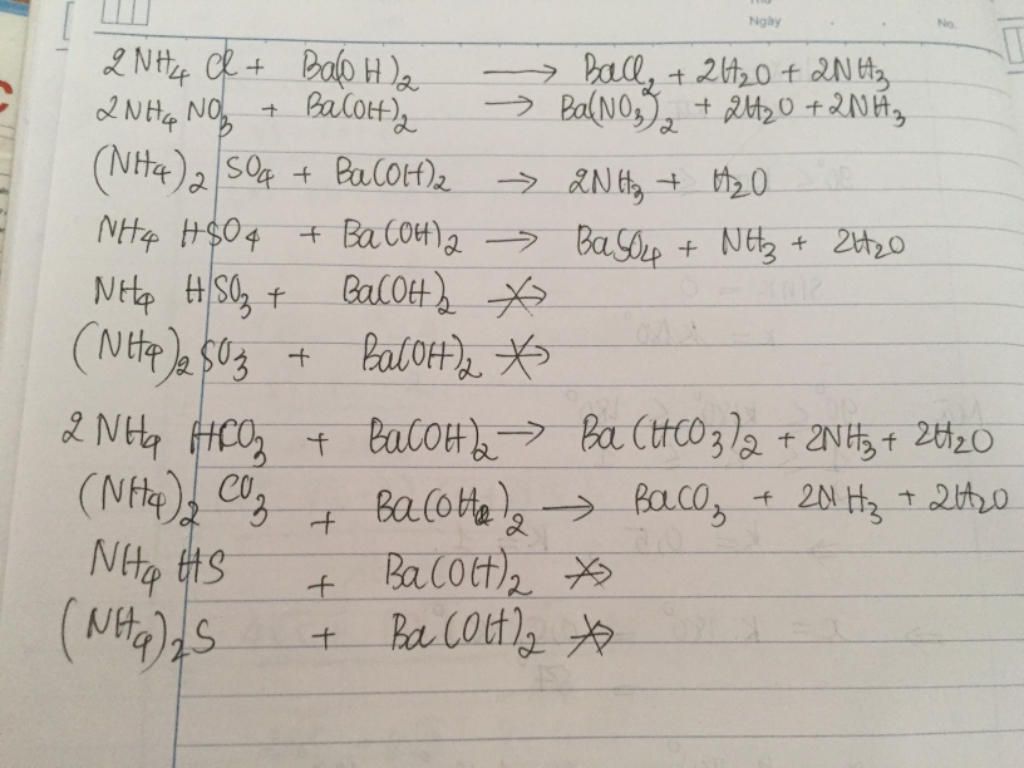 Thứ
Ngày . . No.
2NH4Cl + Ba(OH)2 → BaCl2 + 2H2O + 2NH3
2NH4NO3 + Ba(OH)2 → Ba(NO3)2 + 2H2O + 2NH3
(NH4)2SO4 + Ba(OH)2 → 2NH3 + H2O
NH4HSO4 + Ba(OH)2 → BaSO4 + NH3 + 2H2O
NH4HSO3 + Ba(OH)2 ↛
(NH4)2SO3 + Ba(OH)2 ↛
2NH4HCO3 + Ba(OH)2 → Ba(HCO3)2 + 2NH3 + 2H2O
(NH4)2CO3 + Ba(OH)2 → BaCO3 + 2NH3 + 2H2O
NH4HS + Ba(OH)2 ↛
(NH4)2S + Ba(OH)2 ↛